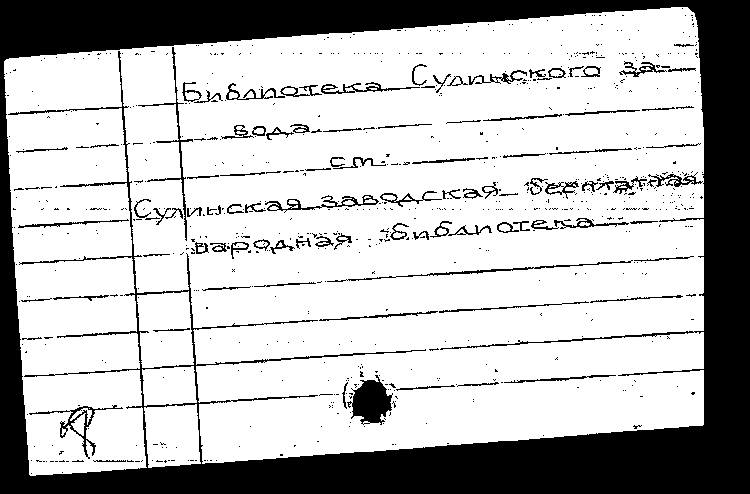 Библиотека Сулинского за-
вода
ст.
Сулинская заводская бесплатная
народная библиотека